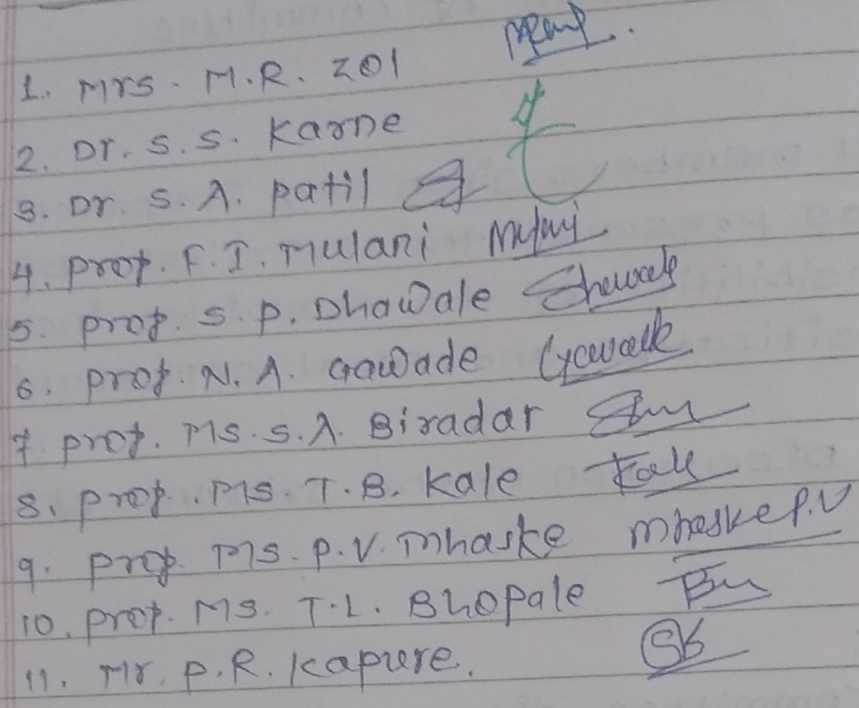 1. Mrs. M.R. Zol
2. Dr. S.S. Karne
3. Dr. S.A. Patil
4. Prof. F.I. Mulani
5. Prof. S.P. Dhawale
6. Prof. N.A. Gawade
7. Prof. Ms. S.A. Biradar
8. Prof. Ms. T.B. Kale Kale
9. Prof. Ms. P.V. Mhaske Mhaske P.V
10. Prof. Ms. T.L. Bhopale
11. Mr. P.R. Kapure.